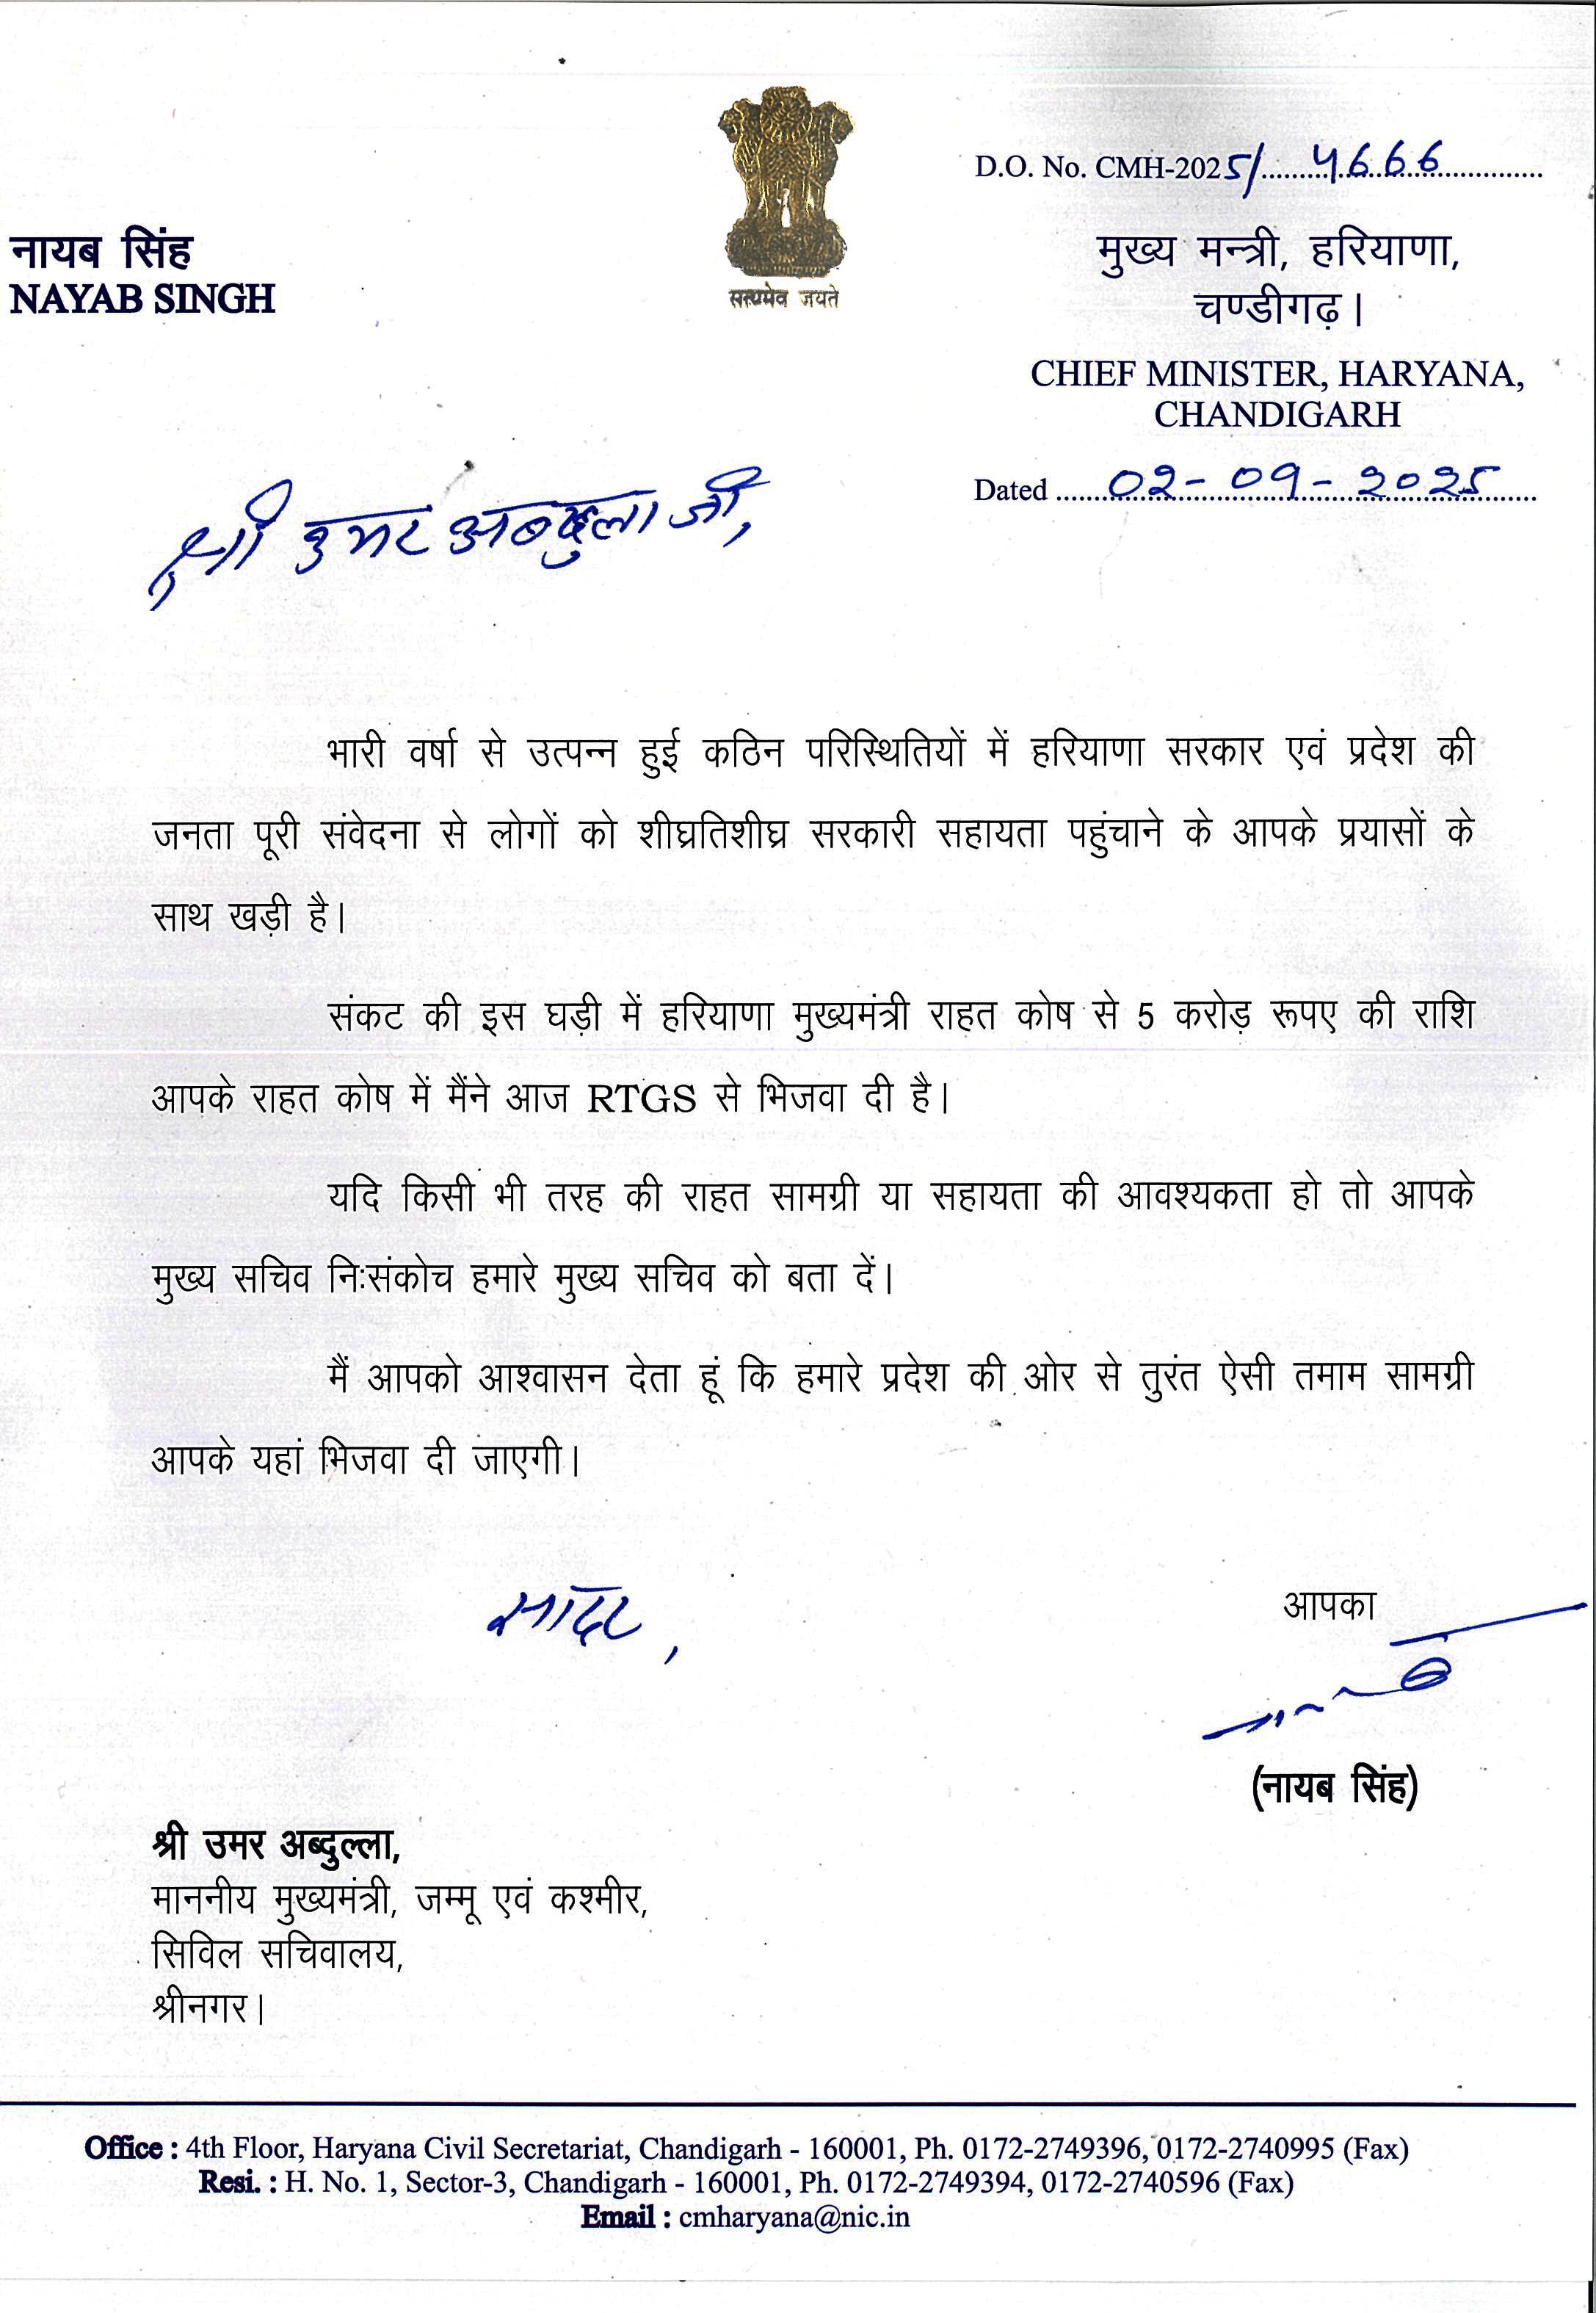 सत्यमेव जयते
नायब सिंह
NAYAB SINGH
D.O. No. CMH-2025/ 4666
मुख्य मन्त्री, हरियाणा,
चण्डीगढ़।
CHIEF MINISTER, HARYANA,
CHANDIGARH
Dated 02-09-2025
श्री उमर अब्दुल्ला जी,
भारी वर्षा से उत्पन्न हुई कठिन परिस्थितियों में हरियाणा सरकार एवं प्रदेश की
जनता पूरी संवेदना से लोगों को शीघ्रतिशीघ्र सरकारी सहायता पहुंचाने के आपके प्रयासों के
साथ खड़ी है।
संकट की इस घड़ी में हरियाणा मुख्यमंत्री राहत कोष से 5 करोड़ रूपए की राशि
आपके राहत कोष में मैंने आज RTGS से भिजवा दी है।
यदि किसी भी तरह की राहत सामग्री या सहायता की आवश्यकता हो तो आपके
मुख्य सचिव निःसंकोच हमारे मुख्य सचिव को बता दें।
मैं आपको आश्वासन देता हूं कि हमारे प्रदेश की ओर से तुरंत ऐसी तमाम सामग्री
आपके यहां भिजवा दी जाएगी।
सादर,
आपका
(नायब सिंह)
श्री उमर अब्दुल्ला,
माननीय मुख्यमंत्री, जम्मू एवं कश्मीर,
सिविल सचिवालय,
श्रीनगर।
Office : 4th Floor, Haryana Civil Secretariat, Chandigarh - 160001, Ph. 0172-2749396, 0172-2740995 (Fax)
Resi. : H. No. 1, Sector-3, Chandigarh - 160001, Ph. 0172-2749394, 0172-2740596 (Fax)
Email : cmharyana@nic.in